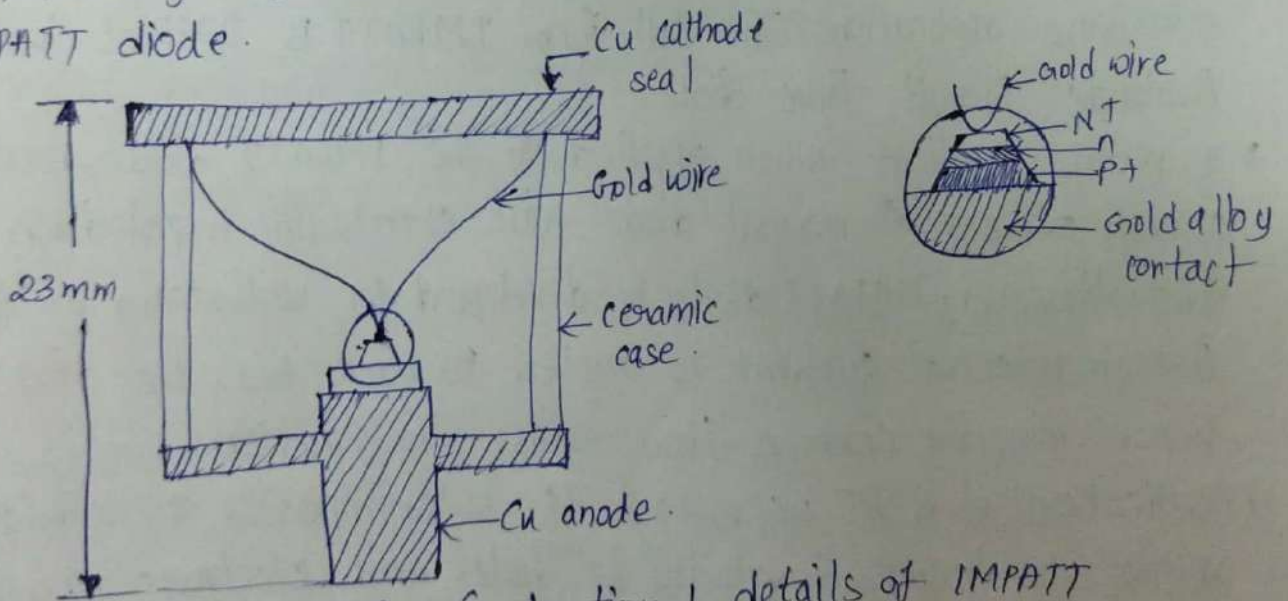 PATT diode.
Cu cathode
seal
Gold wire
23mm
ceramic
case.
Cu anode.
Gold wire
N+
n
P+
Gold alloy
contact
details of IMPATT